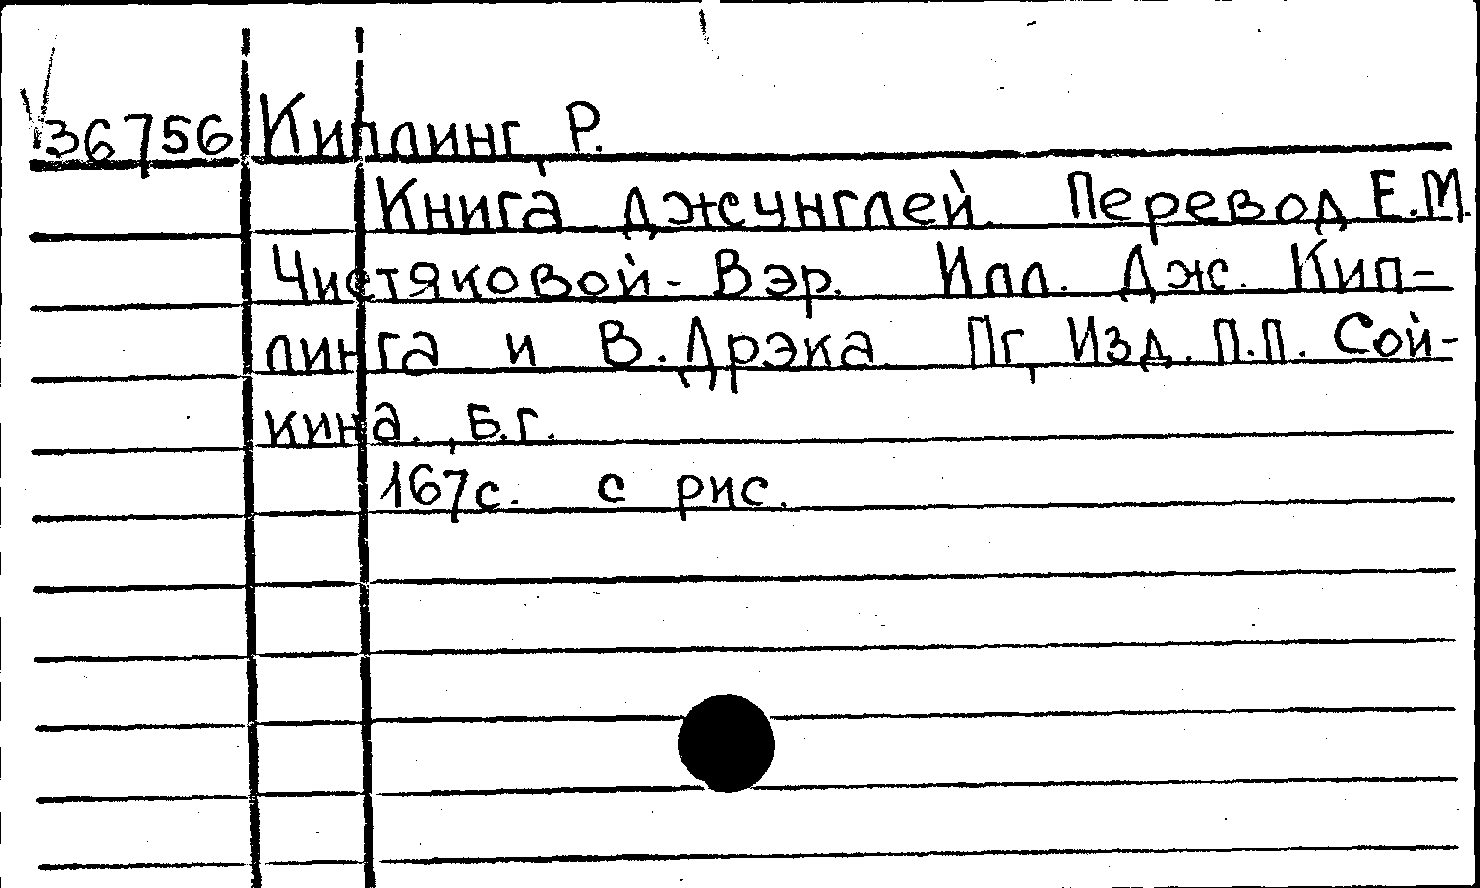 36756 Киплинг, Р.
Книга джунглей. Перевод Е.М.
Чистяковой-Вэр. Илл. Дж. Кип-
линга и В. Дрэка. Пг, Изд. П.П. Сой-
кина., Б.г.
167с. с рис.